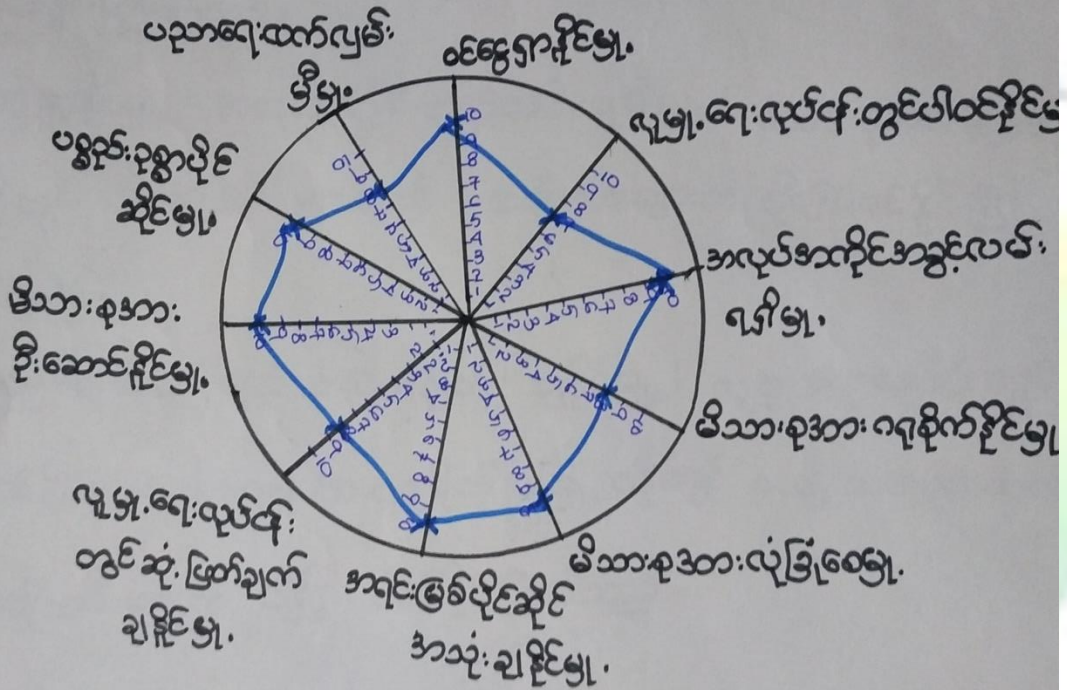 ပညာရေးထက်လှမ်း
မှီမှု.
ဝင်ငွေရှာနိုင်မှု.
လူမှု.ရေးလုပ်ငန်းတွင်ပါဝင်နိုင်မှု
အလုပ်အကိုင်အခွင့်လမ်း
ရှိမှု.
မိသားစုအားဂရုစိုက်နိုင်မှု
မိသားစုအားလုံခြုံစေမှု.
အရင်းမြစ်ပိုင်ဆိုင်
အသုံးချနိုင်မှု.
လူမှု.ရေးလုပ်ငန်း
တွင်ဆုံးဖြတ်ချက်
ချနိုင်မှု.
မိသားစုအား
ဦးဆောင်နိုင်မှု.
ပစ္စည်းဥစ္စာပိုင်
ဆိုင်မှု.